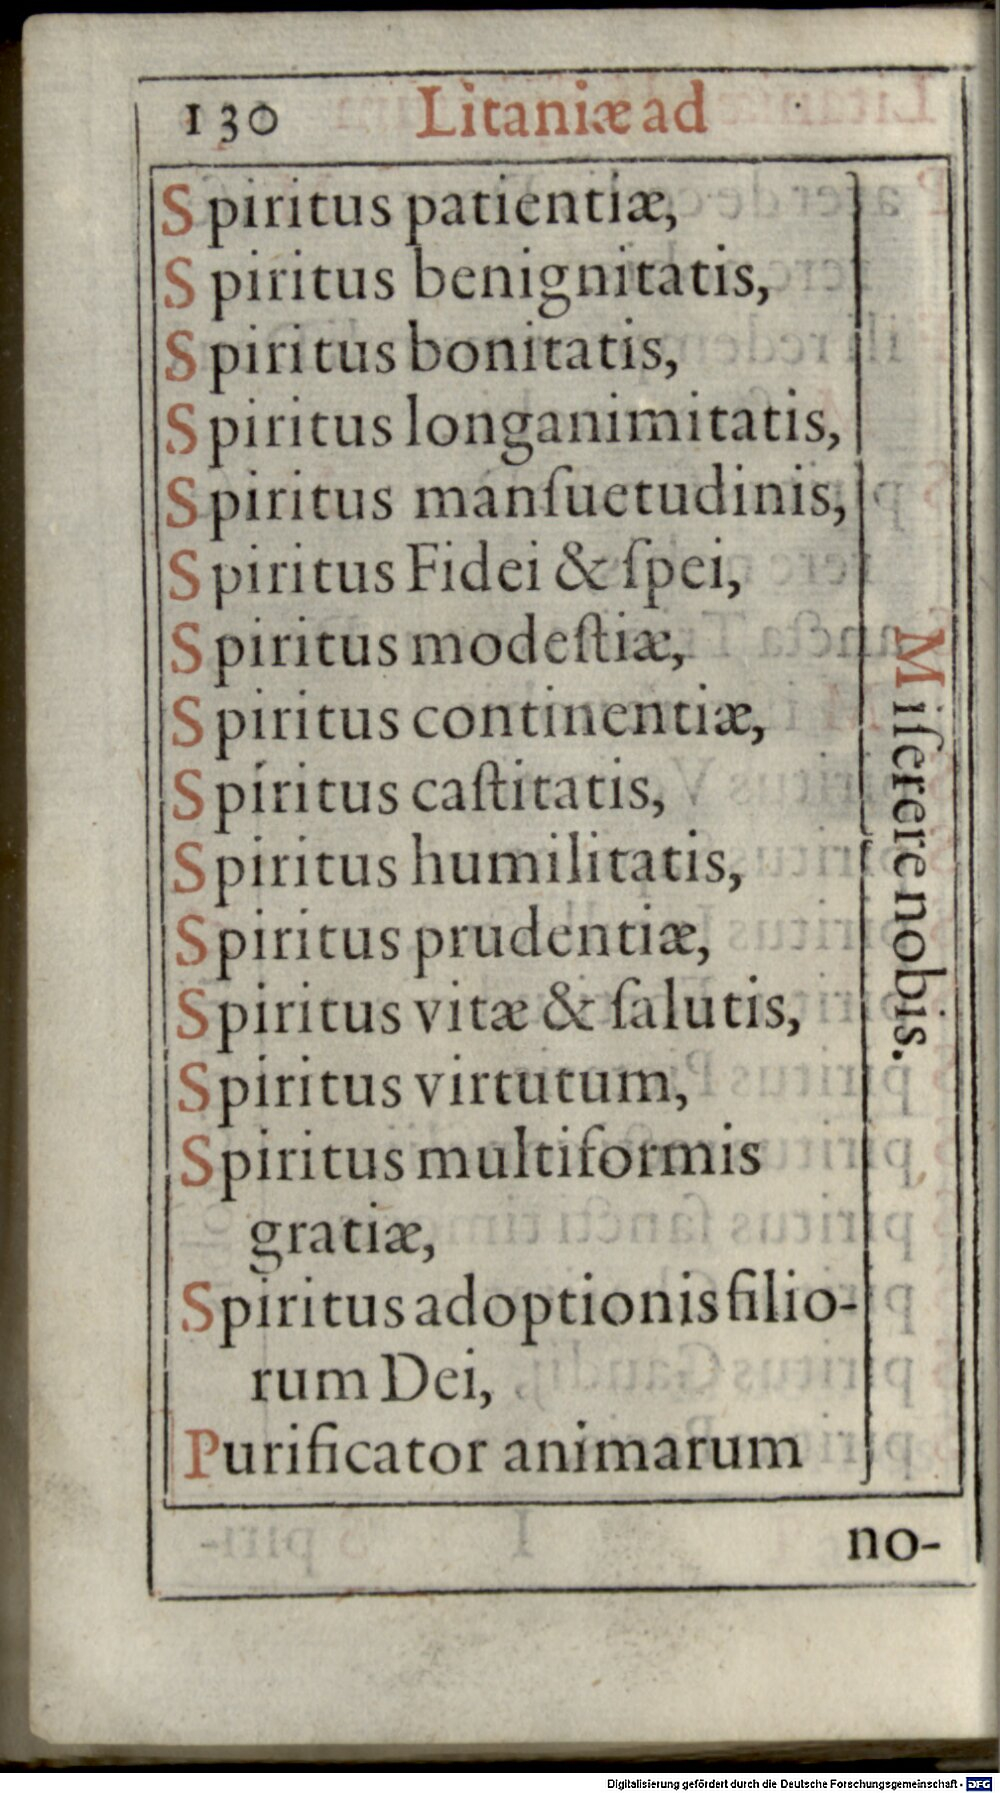 130 Litaniæ ad
Spiritus patientiæ,
Spiritus benignitatis,
Spiritus bonitatis,
Spiritus longanimitatis,
Spiritus manſuetudinis,
Spiritus Fidei & ſpei,
Spiritus modeſtiæ,
Spiritus continentiæ,
Spiritus caſtitatis,
Spiritus humilitatis,
Spiritus prudentiæ,
Spiritus vitæ & ſalutis,
Spiritus virtutum,
Spiritus multiformis
gratiæ,
Spiritus adoptionis filio-
rum Dei,
Purificator animarum
Miſerere nobis.
no-
Digitalisierung gefördert durch die Deutsche Forschungsgemeinschaft - DFG